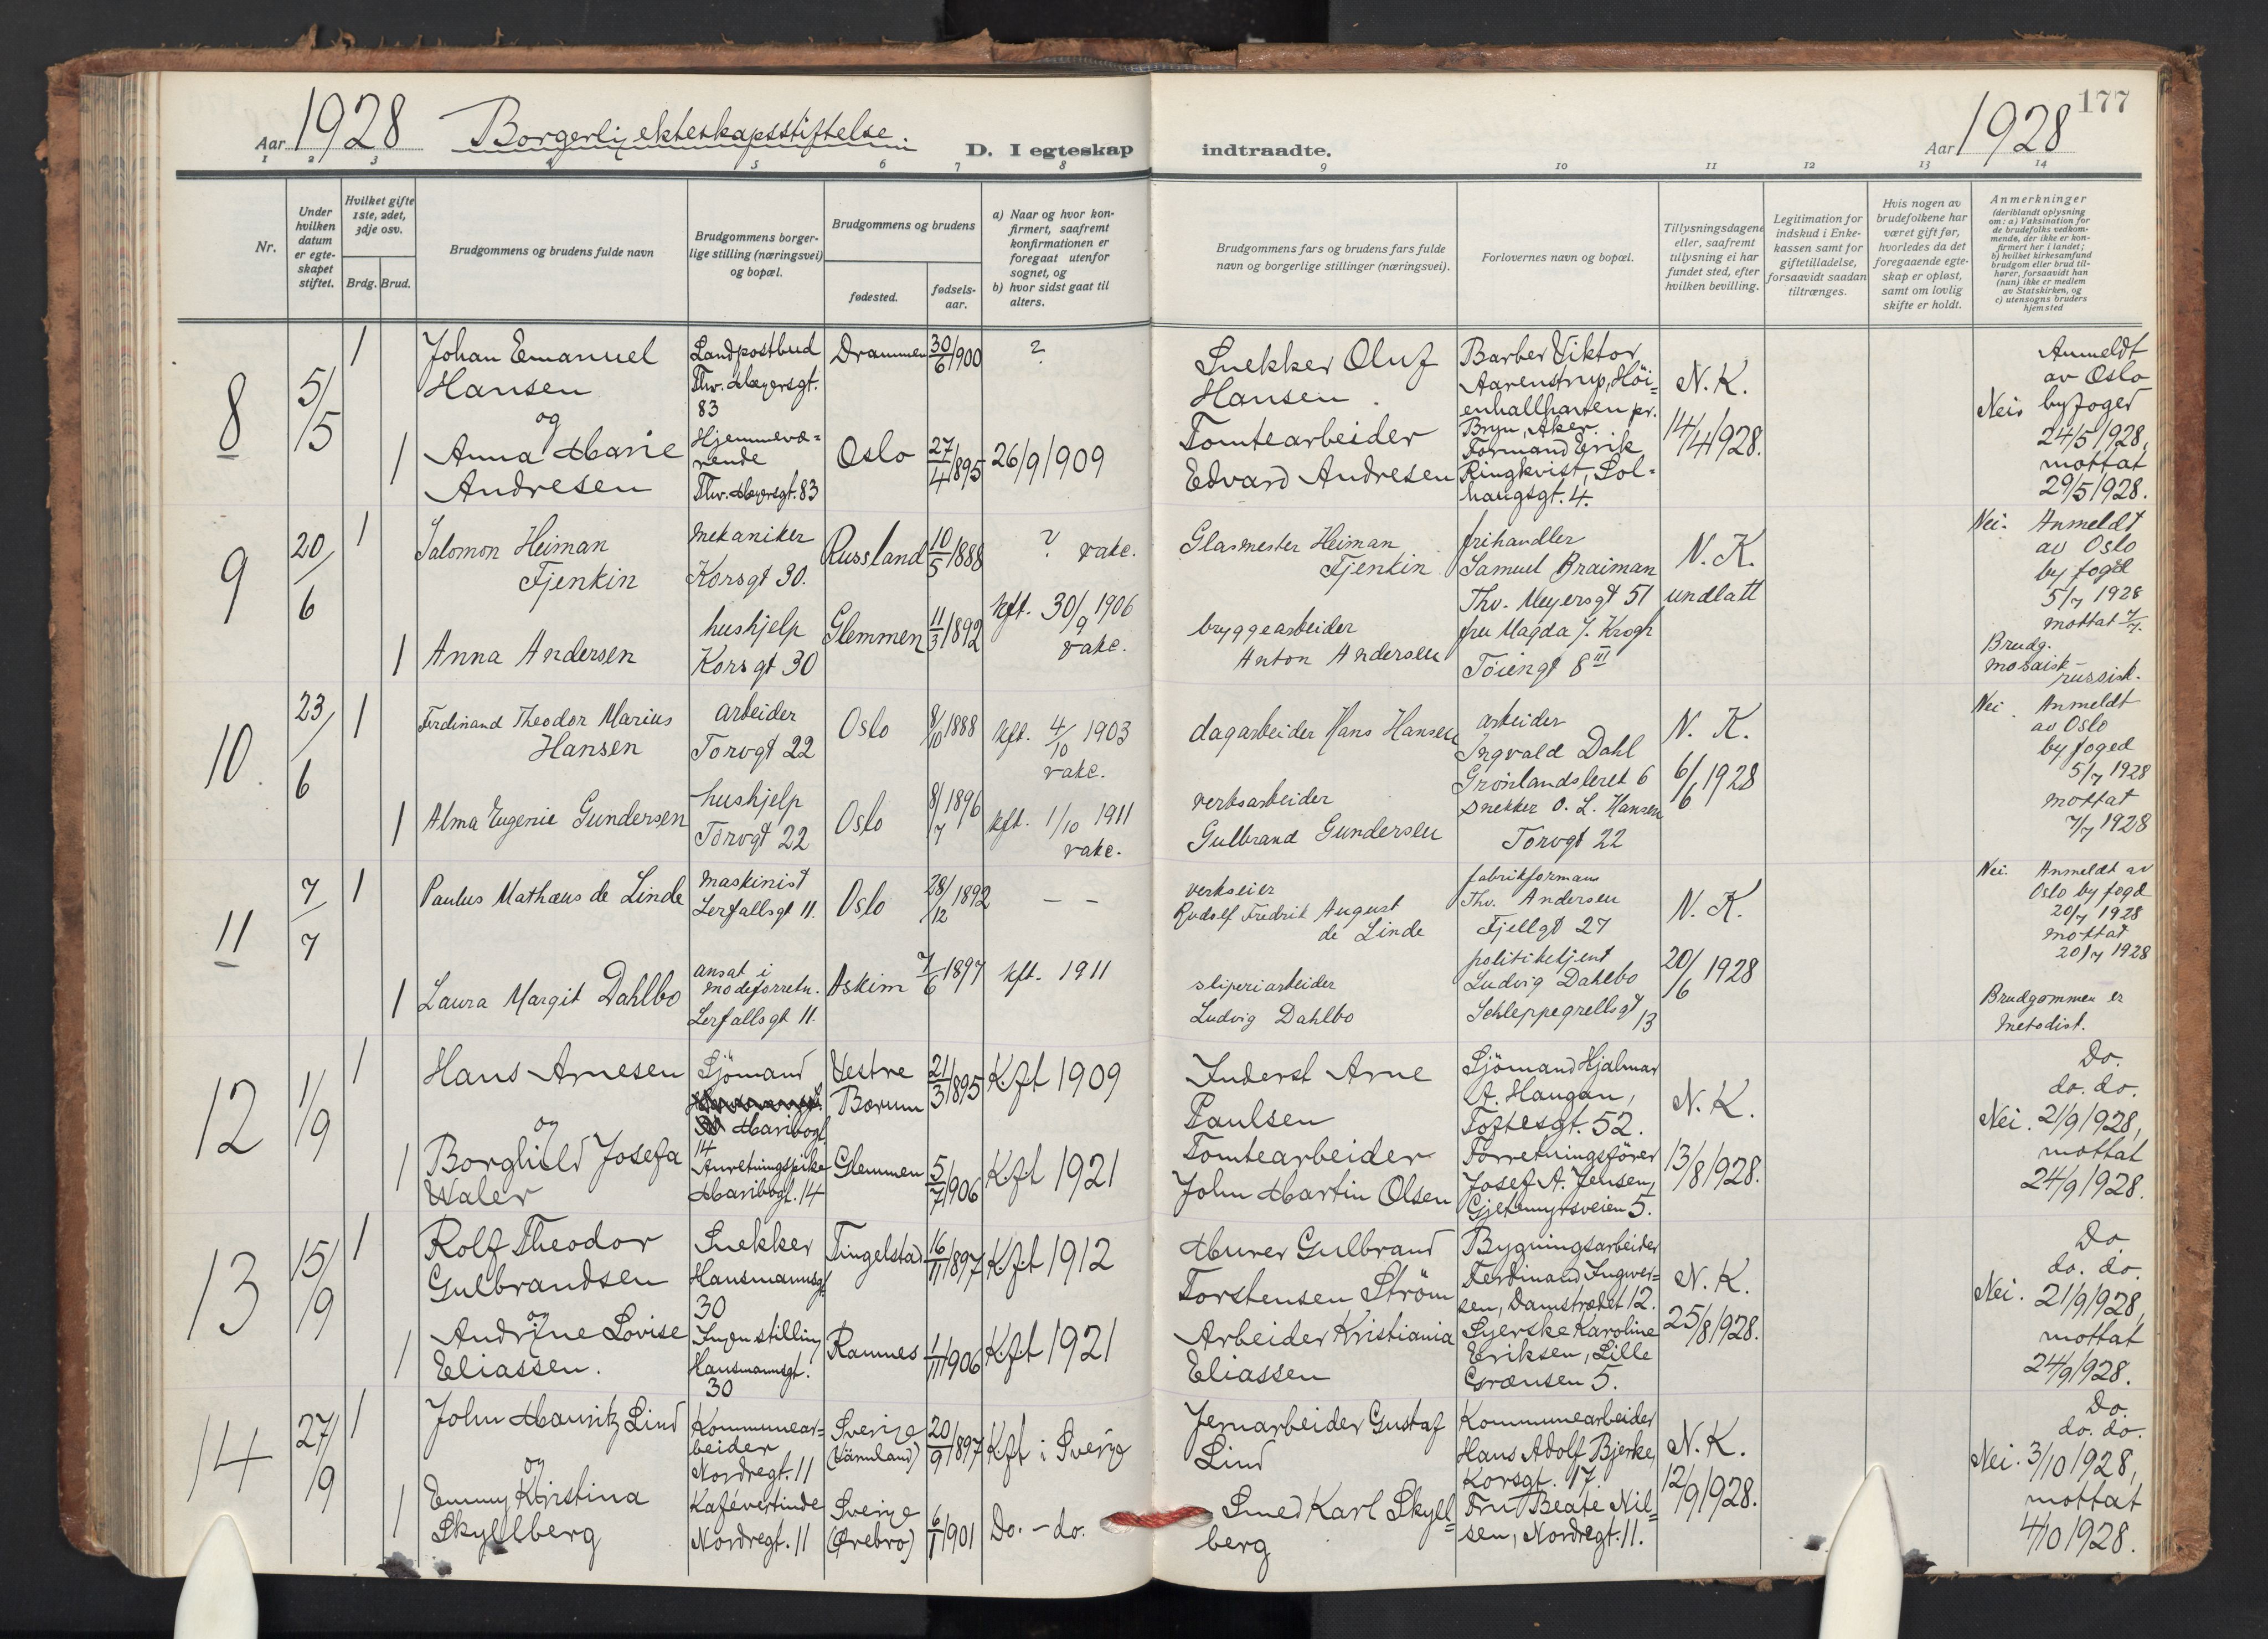 177
Aar 1928 Borgerlig ekteskapsstiftelse.
D. I egteskap indtraadte.
Aar 1928
1 2 3 4 5 6 7 8 9 10 11 12 13 14
Nr.
Under hvilken datum er egteskapet stiftet.
Hvilket gifte 1ste, 2det, 3dje osv.
Brdg. Brud.
Brudgommens og brudens fulde navn
Brudgommens borgerlige stilling (næringsvei) og bopæl.
Brudgommens og brudens
fødested.
fødselsaar.
a) Naar og hvor konfirmert, saafremt konfirmationen er foregaat utenfor sognet, og
b) hvor sidst gaat til alters.
Brudgommens fars og brudens fars fulde navn og borgerlige stillinger (næringsvei).
Forlovernes navn og bopæl.
Tillysningsdagene eller, saafremt tillysning ei har fundet sted, efter hvilken bevilling.
Legitimation for indskud i Enkekassen samt for giftetilladelse, forsaavidt saadan tiltrænges.
Hvis nogen av brudefolkene har været gift før, hvorledes da det foregaaende egteskap er opløst, samt om lovlig skifte er holdt.
Anmerkninger
(deriblandt oplysning om: a) Vaksination for de brudefolks vedkommende, der ikke er konfirmert her i landet; b) hvilket kirkesamfund brudgom eller brud tilhører, forsaavidt han (hun) ikke er medlem av Statskirken, og c) utensogns bruders hjemsted
8
5/5
1
Johan Emanuel
Hansen
og
Landpostbud
Thv. Meyersgt.
83
Drammen
30/6 1900
?
Snekker Oluf
Hansen.
Barber Viktor
Aarenstrup, Höi=
enhallhaven pr.
Bryn, Aker.
N. K.
14/4 1928.
Nei
Anmeldt
av Oslo
byfoged
24/5 1928,
mottat
29/5 1928.
1
Anna Marie
Andresen
Hjemmevæ=
rende
Thv. Meyersgt. 83
Oslo
27/4 1895
26/9 1909
Tomtearbeider
Edvard Andresen
Formand Erik
Ringkvist, Sol=
haugsgt. 4.
9
20/6
1
Salomon Heiman
Fjenkin
mekaniker
Korsgt 30.
Russland
10/5 1888
? vakc.
Glasmester Heiman
Fjenkin
frihandler
Samuel Braiman
Thv. Meyersgt 51
N. K.
undlatt
Nei. Anmeldt
av Oslo
by fogd
5/7 1928
mottat 7/7.
Brudg.
mosaisk –
russisk.
1
Anna Andersen
hushjelp
Korsgt 30
Glemmen
11/3 1892
kft. 30/9 1906
vakc.
bryggearbeider
Anton Andersen
fru Magda J. Krogh
Töiengt 8 III
10.
23/6
1
Ferdinand Theodor Marius
Hansen
arbeider
Torvgt 22
Oslo
8/10 1888
kft. 4/10 1903
vakc.
dagarbeider Hans Hansen
arbeider
Ingvald Dahl
Grønlandsleret 6
N. K.
6/6 1928
Nei. Anmeldt
av Oslo
by foged
5/7 1928
mottat
7/7 1928
1
Alma Eugenie Gundersen
hushjelp
Torvgt 22
Oslo
8/7 1896
kft. 1/10 1911
vakc.
verksarbeider
Gulbrand Gundersen
snekker O. L. Hansen
Torvgt 22
11
7/7
1
Paulus Mathæus de Linde
maskinist
Lerfallsgt 11.
Oslo
28/12 1892
– –
verkseier
Rudolf Fredrik August
de Linde
fabrikformann
Thv. Andersen
Fjellgt 27
N. K.
20/6 1928
Nei. Anmeldt av
Oslo by fogd
20/7 1928
mottat
20/7 1928
Brudgommen er
Metodist.
1
Laura Margit Dahlbo
ansat i
modeforretn.
Lerfallsgt 11.
Askim
7/6 1897
kft. 1911
sliperiarbeider
Ludvig Dahlbo
politibetjent
Ludvig Dahlbo
Schleppegrellsgt
13
12
1/9
1
Hans Arnesen
og
Sjömand
Maribogt.
14
Vestre
Bærum
21/3 1895
K.ft 1909
Inderst Arne
Paulsen
Sjömand Hjalmar
A. Haugan,
Toftesgt. 52.
N. K.
13/8 1928.
Do.
do. do.
Nei. 21/9 1928,
mottat
24/9 1928.
1
Borghild Josefa
Waler
Anretningspike
Maribogt. 14
Glemmen
5/7 1906
K.ft 1921
Tomtearbeider
John Martin Olsen
Forretningsfører
Josef A. Jensen,
Gjetemyrsveien 5.
13
15/9
1
Rolf Theodor
Gulbrandsen
og
Snekker
Hausmannsgt.
30
Tingelstad
16/11 1897
K.ft 1912
Murer Gulbrand
Torstensen Ström
Bygningsarbeider
Ferdinand Ingwer=
sen, Damstrædet 12.
N. K.
25/8 1928.
Do
do. do.
Nei. 21/9 1928,
mottat
24/9 1928.
1
Andrine Lovise
Eliassen.
Ingen stilling
Hausmannsgt.
30
Ramnes
1/11 1906
K.ft 1921
Arbeider Kristiania
Eliassen
Syerske Karoline
Eriksen, Lille
Grænsen 5.
14
27/9
1
John Mauritz Lind
og
Kommunear=
beider
Nordregt. 11
Sverige
(Värmland)
20/9 1897
K.ft i Sverige
Jernarbeider Gustaf
Lind
Kommunearbeider
Hans Adolf Bjerke,
Korsgt. 17.
N. K.
12/9 1928.
Do.
do. do.
Nei. 3/10 1928,
mottat
4/10 1928.
1
Emmy Kristina
Skyllberg
Kafévertinde
Nordregt. 11
Sverige
(Ørebro)
6/1 1901
Do. – do.
Smed Karl Skyll=
berg
Fru Beate Nil=
sen, Nordregt. 11.